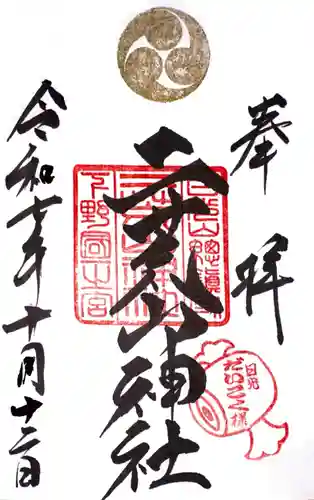 奉拝
二荒山神社
下野國一之宮
日光
だいこく様
令和七年十月十二日